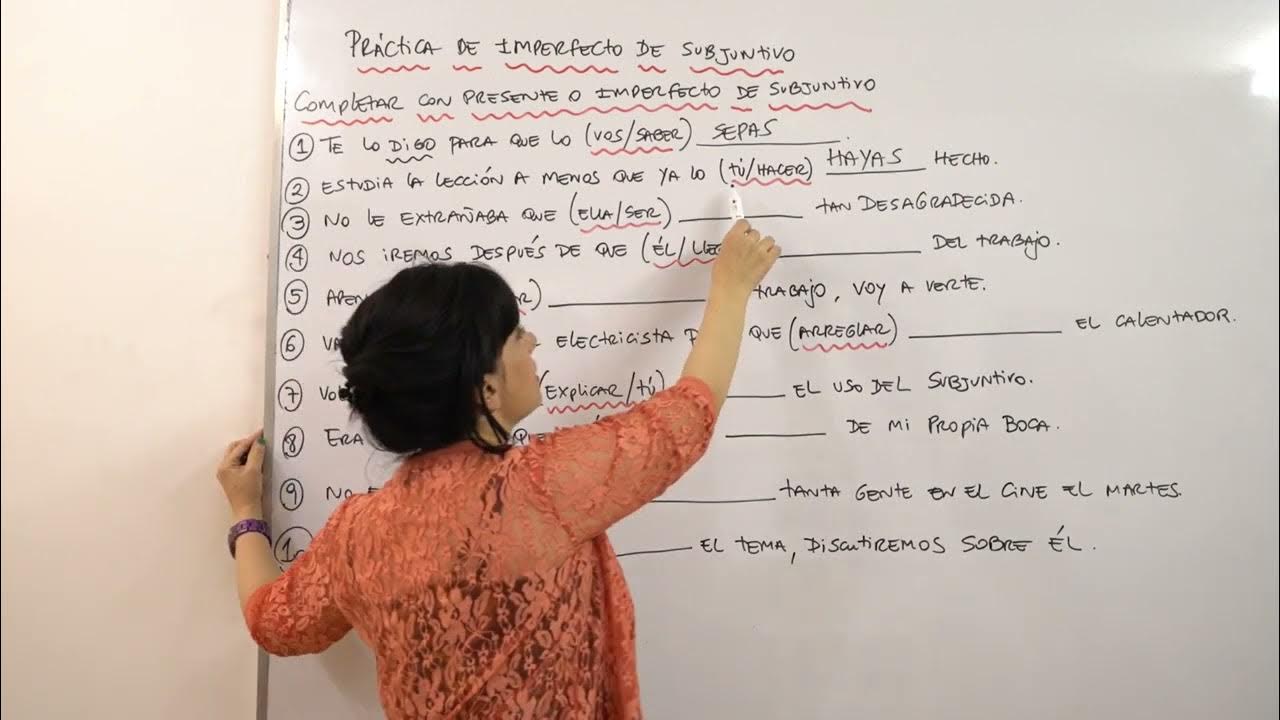 PRÁCTICA DE IMPERFECTO DE SUBJUNTIVO
COMPLETAR CON PRESENTE O IMPERFECTO DE SUBJUNTIVO
① TE LO DIGO PARA QUE LO (VOS/SABER) SEPAS.
② ESTUDIA LA LECCIÓN A MENOS QUE YA LO (TÚ/HACER) HAYAS HECHO.
③ NO LE EXTRAÑABA QUE (ELLA/SER) ____ TAN DESAGRADECIDA.
④ NOS IREMOS DESPUÉS DE QUE (ÉL/ ____ DEL TRABAJO.
⑤ ____ TRABAJO, VOY A VERTE.
⑥ ELECTRICISTA QUE (ARREGLAR) ____ EL CALENTADOR.
⑦ (EXPLICAR/TÚ) ____ EL USO DEL SUBJUNTIVO.
⑧ ERA QUE ____ DE MI PROPIA BOCA.
⑨ NO ____ TANTA GENTE EN EL CINE EL MARTES.
____ EL TEMA, DISCUTIREMOS SOBRE ÉL.